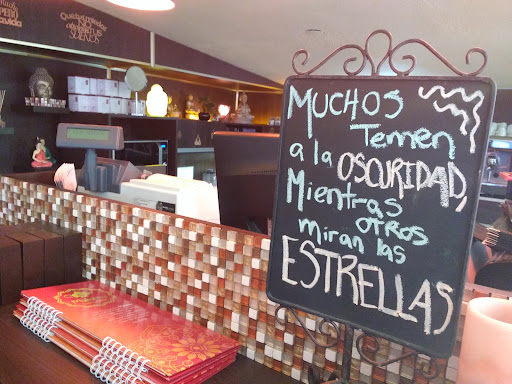 MUCHOS
Temen
a la OSCURIDAD,
Mientras
otros
miran las
ESTRELLAS